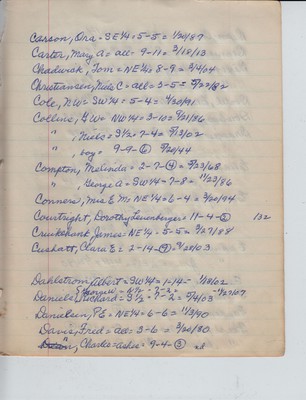 Carson, Ora = SE¼ = 5-5 = 1/20/87
Carter, Mary A = all = 9-11 = 3/18/13
Chadwick, Tom = NE¼ = 8-9 = 3/4/04
Christiansen, Nels C = all = 3-5 = 9/22/82
Cole, N.W = SW¼ = 5-4 = 4/20/91
Collins, G.W = NW¼ = 3-10 = 9/21/86
" , Niels = S½ = 7-4 = 9/3/02
" , boy = 9-9-⑥ 9/20/44
Compton, Melinda = 2-7-④ = 9/23/68
" , George A = SW¼ = 7-8 = 11/23/86
Conners, Mrs E.M = NE¼ = 6-4 = 3/20/94
Courtright, Dorothy Leuenberger = 11-4-⑥ 132
Cruikshank, James = NE¼ = 5-5 = 3/27/88
Cushatt, Clara E = 2-14-⑨ = 9/28/03
Dahlstrom, Albert = SW¼ = 1-14 = 1/18/02
Daniels, Richard = S½ = 7-2 = 9/4/03
Danielson, P.E = NE¼ = 6-6 = 11/3/90
Davis, Fred = all = 3-6 = 3/20/80
" , Charles = ashes = 9-4-③